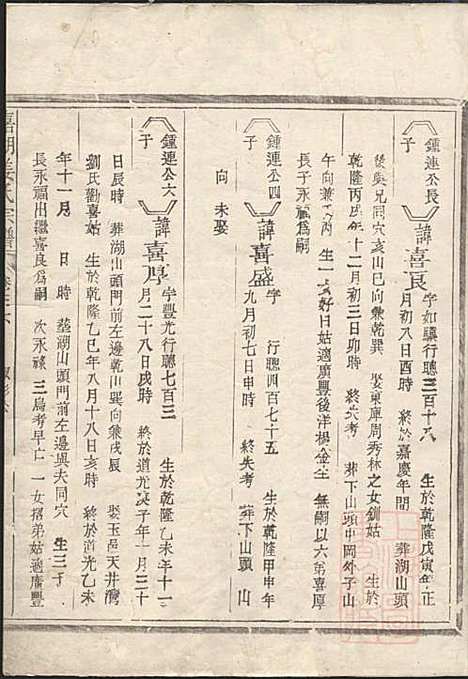 鍾連公長子
諱喜良
字如驥行聰三百十八 生於乾隆戊寅年正
月初八日酉時 終於嘉慶年間 葬湖山頭
後與兄同穴亥山巳向兼乾巽 娶東庫周秀林之女釧姑 生於
乾隆丙戌年十二月初三日卯時 終失考 葬下山頭中岡外子山
午向兼癸丙 生一女好姑適廣豐後洋楊金生 無嗣以六弟喜厚
長子永福為嗣
鍾連公四子
諱喜盛
字 行聰四百七十五 生於乾隆甲申年
九月初七日申時 終失考 葬下山頭 山
向 未娶
鍾連公六子
諱喜厚
字豐光行聰七百三 生於乾隆乙未年十一
月二十八日戌時 終於道光庚子年一月二十
日辰時 葬湖山頭門前左邊乾山巽向兼戌辰 娶玉邑天井灣
劉氏勸喜姑 生於乾隆乙巳年八月十八日亥時 終於道光乙未
年十一月 日 時 葬湖山頭門前左邊與夫同穴 生三子
長永福出繼喜良為嗣 次永祿 三烏考早亡 一女招弟姑適廣豐
氏宗譜